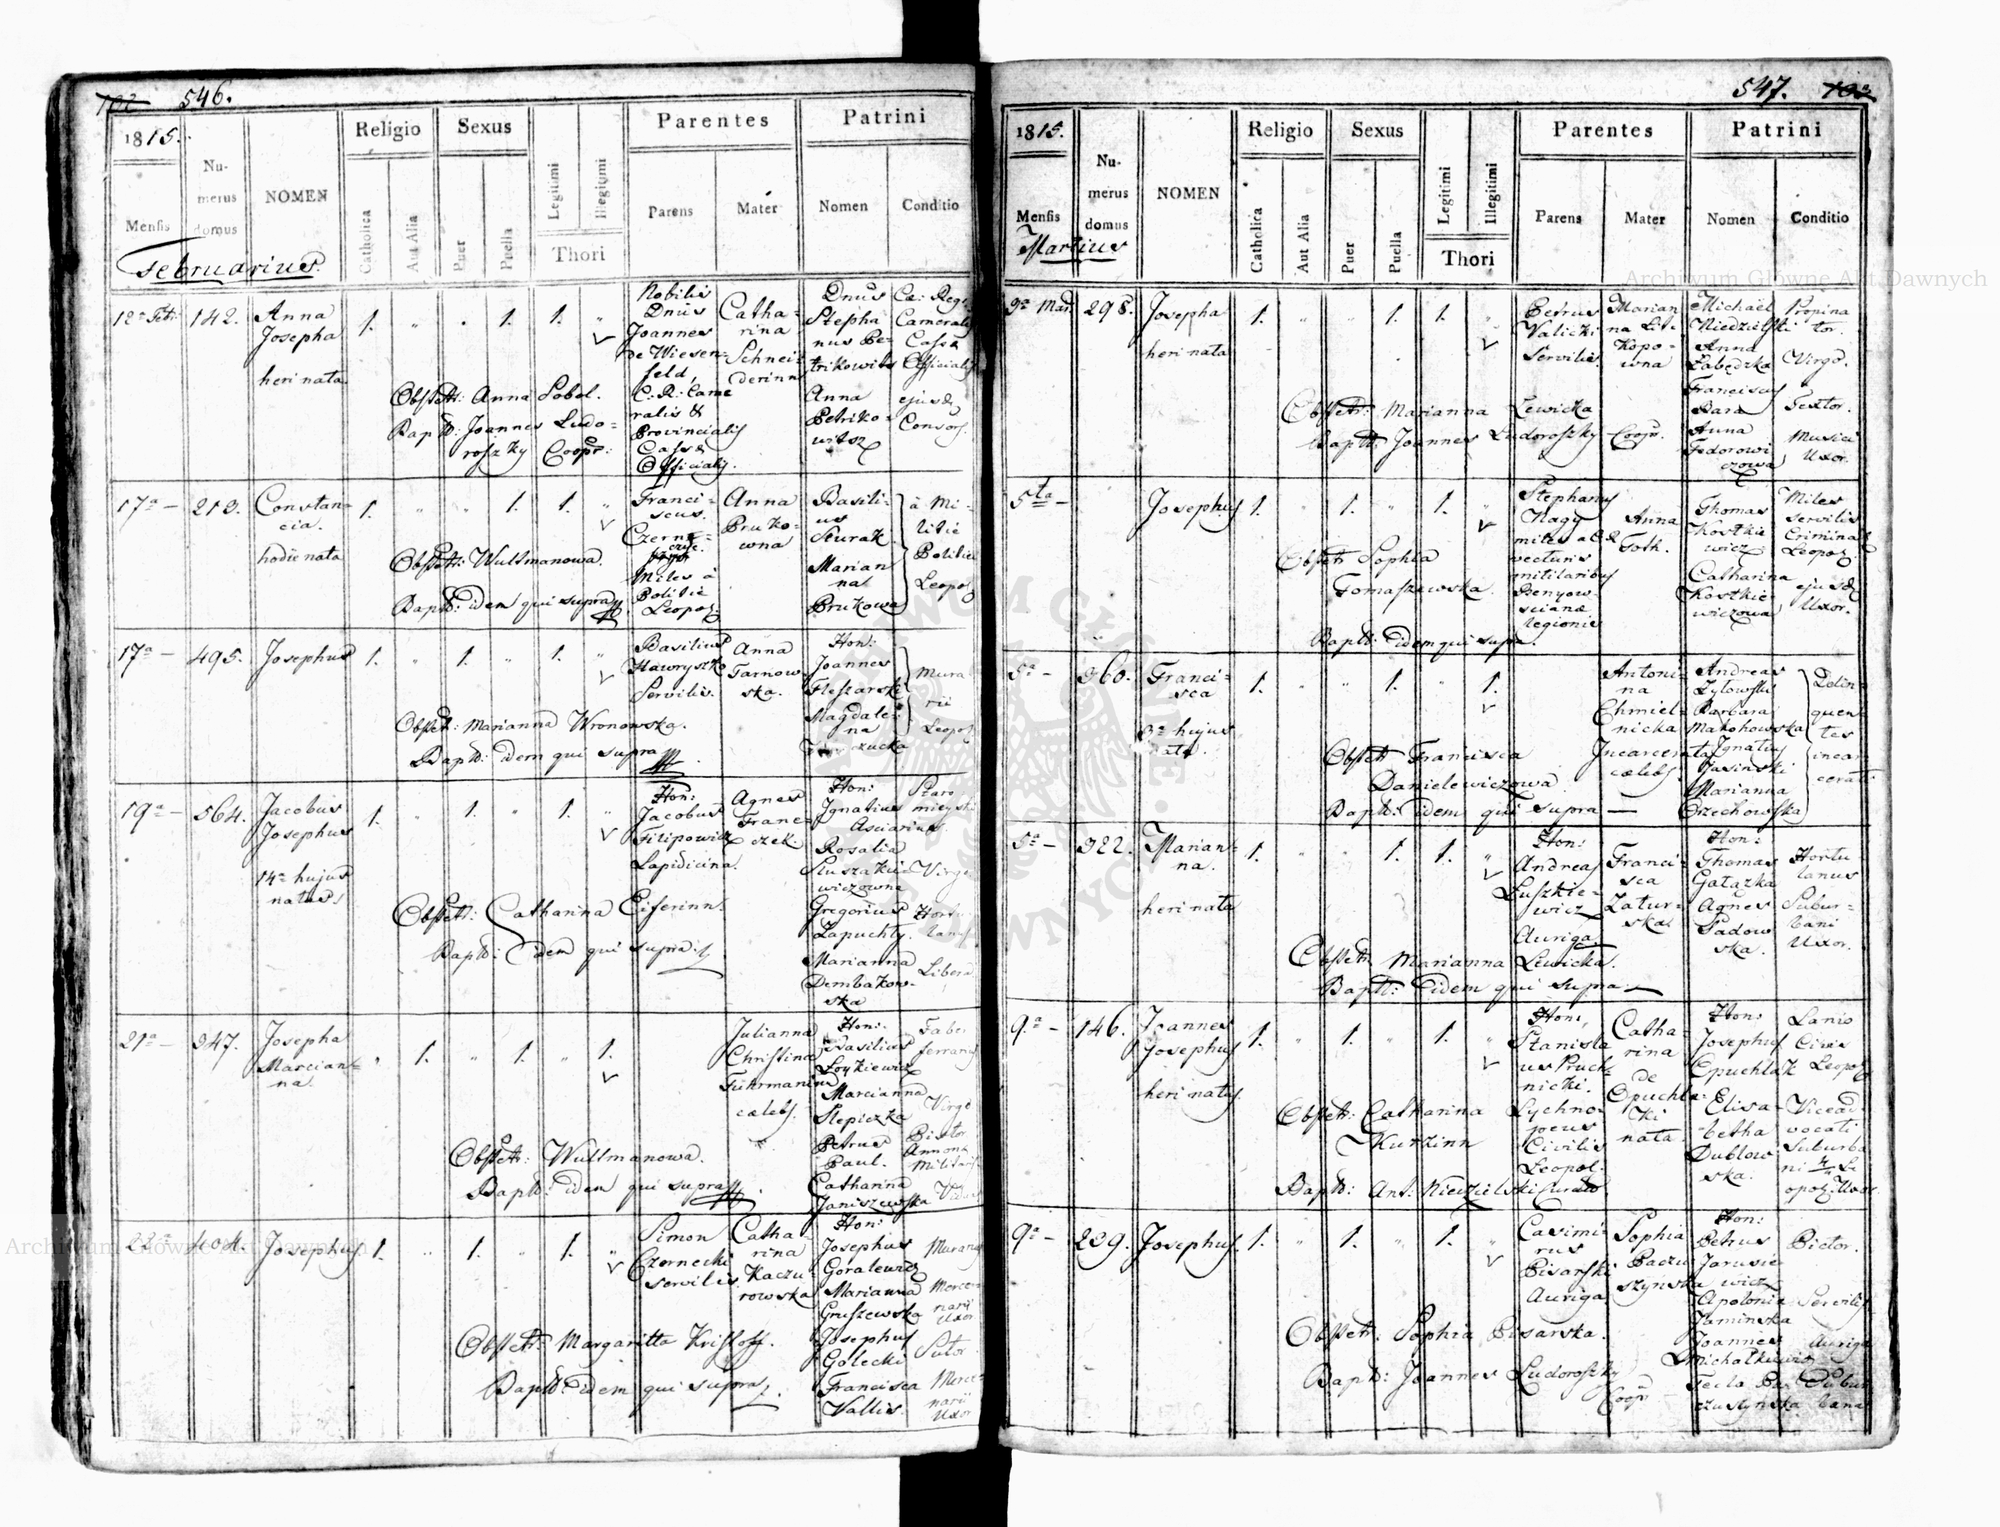 546.
1815.
Mensis
Numerus domus
NOMEN
Religio
Catholica
Aut Alia
Sexus
Puer
Puella
Legitimi
Illegitimi
Thori
Parentes
Parens
Mater
Patrini
Nomen
Conditio
Februarius.
12a Febr.
142.
Anna
Josepha
heri nata
1.
1.
1.
Nobilis
Dnus
Joannes
de Wiesen-
feld,
C. R. Came
ralis &
Provincialis
Cassæ
Officialis.
Catha-
rina
Schnei-
derinn
Dnus
Stepha
nus Pe-
trikowits
Anna
Petriko-
witsz
Cæ: Reg:
Cameralis
Cassæ
Officialis
ejusd
Consors.
Obstetr: Anna Sobol.
Bapt: Joannes Ludo-
roszky Coopr:
17a —
213.
Constan-
cia.
hodie nata
1.
1.
1.
Franci-
scus.
Miles à
Politiæ
Leopol:
Anna
Bruko-
wna
Basili-
us
Skurak
Marian
na
Brukowa
à Mi-
litiæ
Politiæ
Leopol
Obstetr: Wultmanowa.
Bapt: idem qui supra
17a —
495.
Josephus
1.
1.
1.
Basilius
Hawryszko
Servilis.
Anna
Tarnow
ska.
Hon:
Joannes
Fleszarski
Magdale-
na
Mura
rii
Leopol
Obstetr: Marianna Wronowska.
Bapt: idem qui supra
19a —
564.
Jacobus
Josephus
14a hujus
natus
1.
1.
1.
Hon:
Jacobus
Filipowicz
Lapidicina.
Agnes
Franc-
czek.
Hon:
Ignatius
Asciarius
Rosalia
Sluszakie-
wiczowna
Gregorius
Lapuchty.
Marianna
Dembakow-
ska
Staro
mieyski
Virgo
Libera
Obstetr: Catharina Eiferinn.
Bapt: idem qui supra.
21a —
347.
Josepha
Marcian-
na.
1.
1.
1.
Julianna
Christina
Fuhrmaninn
cælebs.
Hon:
Basilius
Loykiewicz
Marcianna
Slepiczka
Petrus
Paul.
Catharina
Janiszewska
Faber
ferrarius
Virgo
Pistor
Annonæ
Militaris
Obstetr: Wultmanowa.
Bapt: idem qui supra
22a
404.
Josephus
1.
1.
1.
Simon
Czernecki
servilis.
Catha-
rina
Kaczu-
rowska
Hon:
Josephus
Goralewicz
Marianna
Gruszewska
Josephus
Golecki
Francisca
Vallis.
Merce-
narii
Uxor
Sutor
Merce-
narii
Uxor
Obstetr: Margaritta Kristoff.
Bapt: idem qui supra
547.
1815.
Mensis
Numerus domus
NOMEN
Religio
Catholica
Aut Alia
Sexus
Puer
Puella
Legitimi
Illegitimi
Thori
Parentes
Parens
Mater
Patrini
Nomen
Conditio
Martius
298.
Josepha
heri nata
1.
1.
1.
Petrus
Valicki
Servilis.
Marian
na Li-
kopo-
wna
Michael
Niedzielski
Anna
Labędzka
Franciscus
Bara
Anna
Fedorowi
czowa
Propina
tor.
Virgo.
Textor.
Musici
Uxor.
Obstetr: Marianna Lewicka
Bapt: Joannes Ludoroszky Coopr.
5ta —
Josephus
1.
1.
1.
Stephanus
Nagy
miles a
vecturis
militaribus
Benyow-
scianæ
legionis
Anna
Toth.
Thomas
Kostkie
wicz
Catharina
Kostkie
wiczowa
Miles
servilis
Criminal
Leopol
ejusd
Uxor.
Obstetr Sophia
Tomaszewska.
Bapt: idem qui supra.
5a —
360.
Franci-
sca
3a hujus
nata.
1.
1.
1.
Antoni-
na
Chmiel-
nicka
Incarcerata
cælebs
Andreas
Zytowski
Barbara
Makohowska
Ignatius
Jasinski
Marianna
Orzechowska
Delin-
quen-
tes
incar-
cerati
Obstetr Francisca
Danielewiczowa
Bapt: idem qui supra —
5a —
322.
Marian-
na.
heri nata
1.
1.
1.
Hon:
Andreas
Luszkie-
wicz
Auriga
Franci-
sca
Zatur-
ska
Hon:
Thomas
Gałązka
Agnes
Sadow
ska.
Hortu
lanus
Subur-
bani
Uxor.
Obstetr Marianna Lewicka.
Bapt: idem qui supra.
9a —
146.
Joannes
Josephus
heri natus
1.
1.
1.
Hon:
Stanisla
us Pruch
nicki.
Lychno-
poeus
Civilis
Leopol.
Catha-
rina
de
Opuchla-
ki
nata
Hon:
Josephus
Opuchlak
Elisa-
betha
Dublow
ska.
Lanio
Civis
Leopol
Vicead-
vocati
Suburba
ni
Obstetr: Catharina
Kurzinn
Bapt: Ant: Niedzielski Curatus
9a —
239.
Josephus.
1.
1.
1.
Casimi-
rus
Pisarski
Auriga
Sophia
Paczu
szynska
Hon:
Petrus
Jarusie
wicz
Apolonia
Kaminska
Joannes
Michalkiewicz
Tecla
Pictor.
Servilis
Auriga
Subur
bana
Obstetr: Sophia Pisarska.
Bapt: Joannes Ludoroszky
Coopr
Archiwum Główne Akt Dawnych